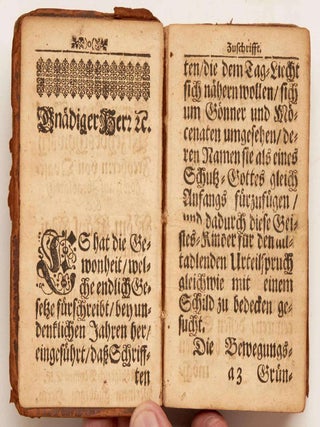 Gnädiger Herr. N.
ES hat die Ge-
wonheit / wel-
che endlich Ge-
setze fürschreibt / bey un-
dencklichen Jahren her /
eingeführt / daß Schriff-
ten
Zuschrifft.
ten / die dem Tag-Liecht
sich nähern wollen / sich
um Gönner und Mö-
cenaten umgesehen / de-
ren Namen sie als eines
Schutz-Gottes gleich
Anfangs fürzufügen /
und dadurch diese Gei-
stes-Kinder für den all-
tadlenden Urteilspruch
gleichwie mit einem
Schild zu bedecken ge-
sucht.
Die Bewegungs-
a3 Grün-